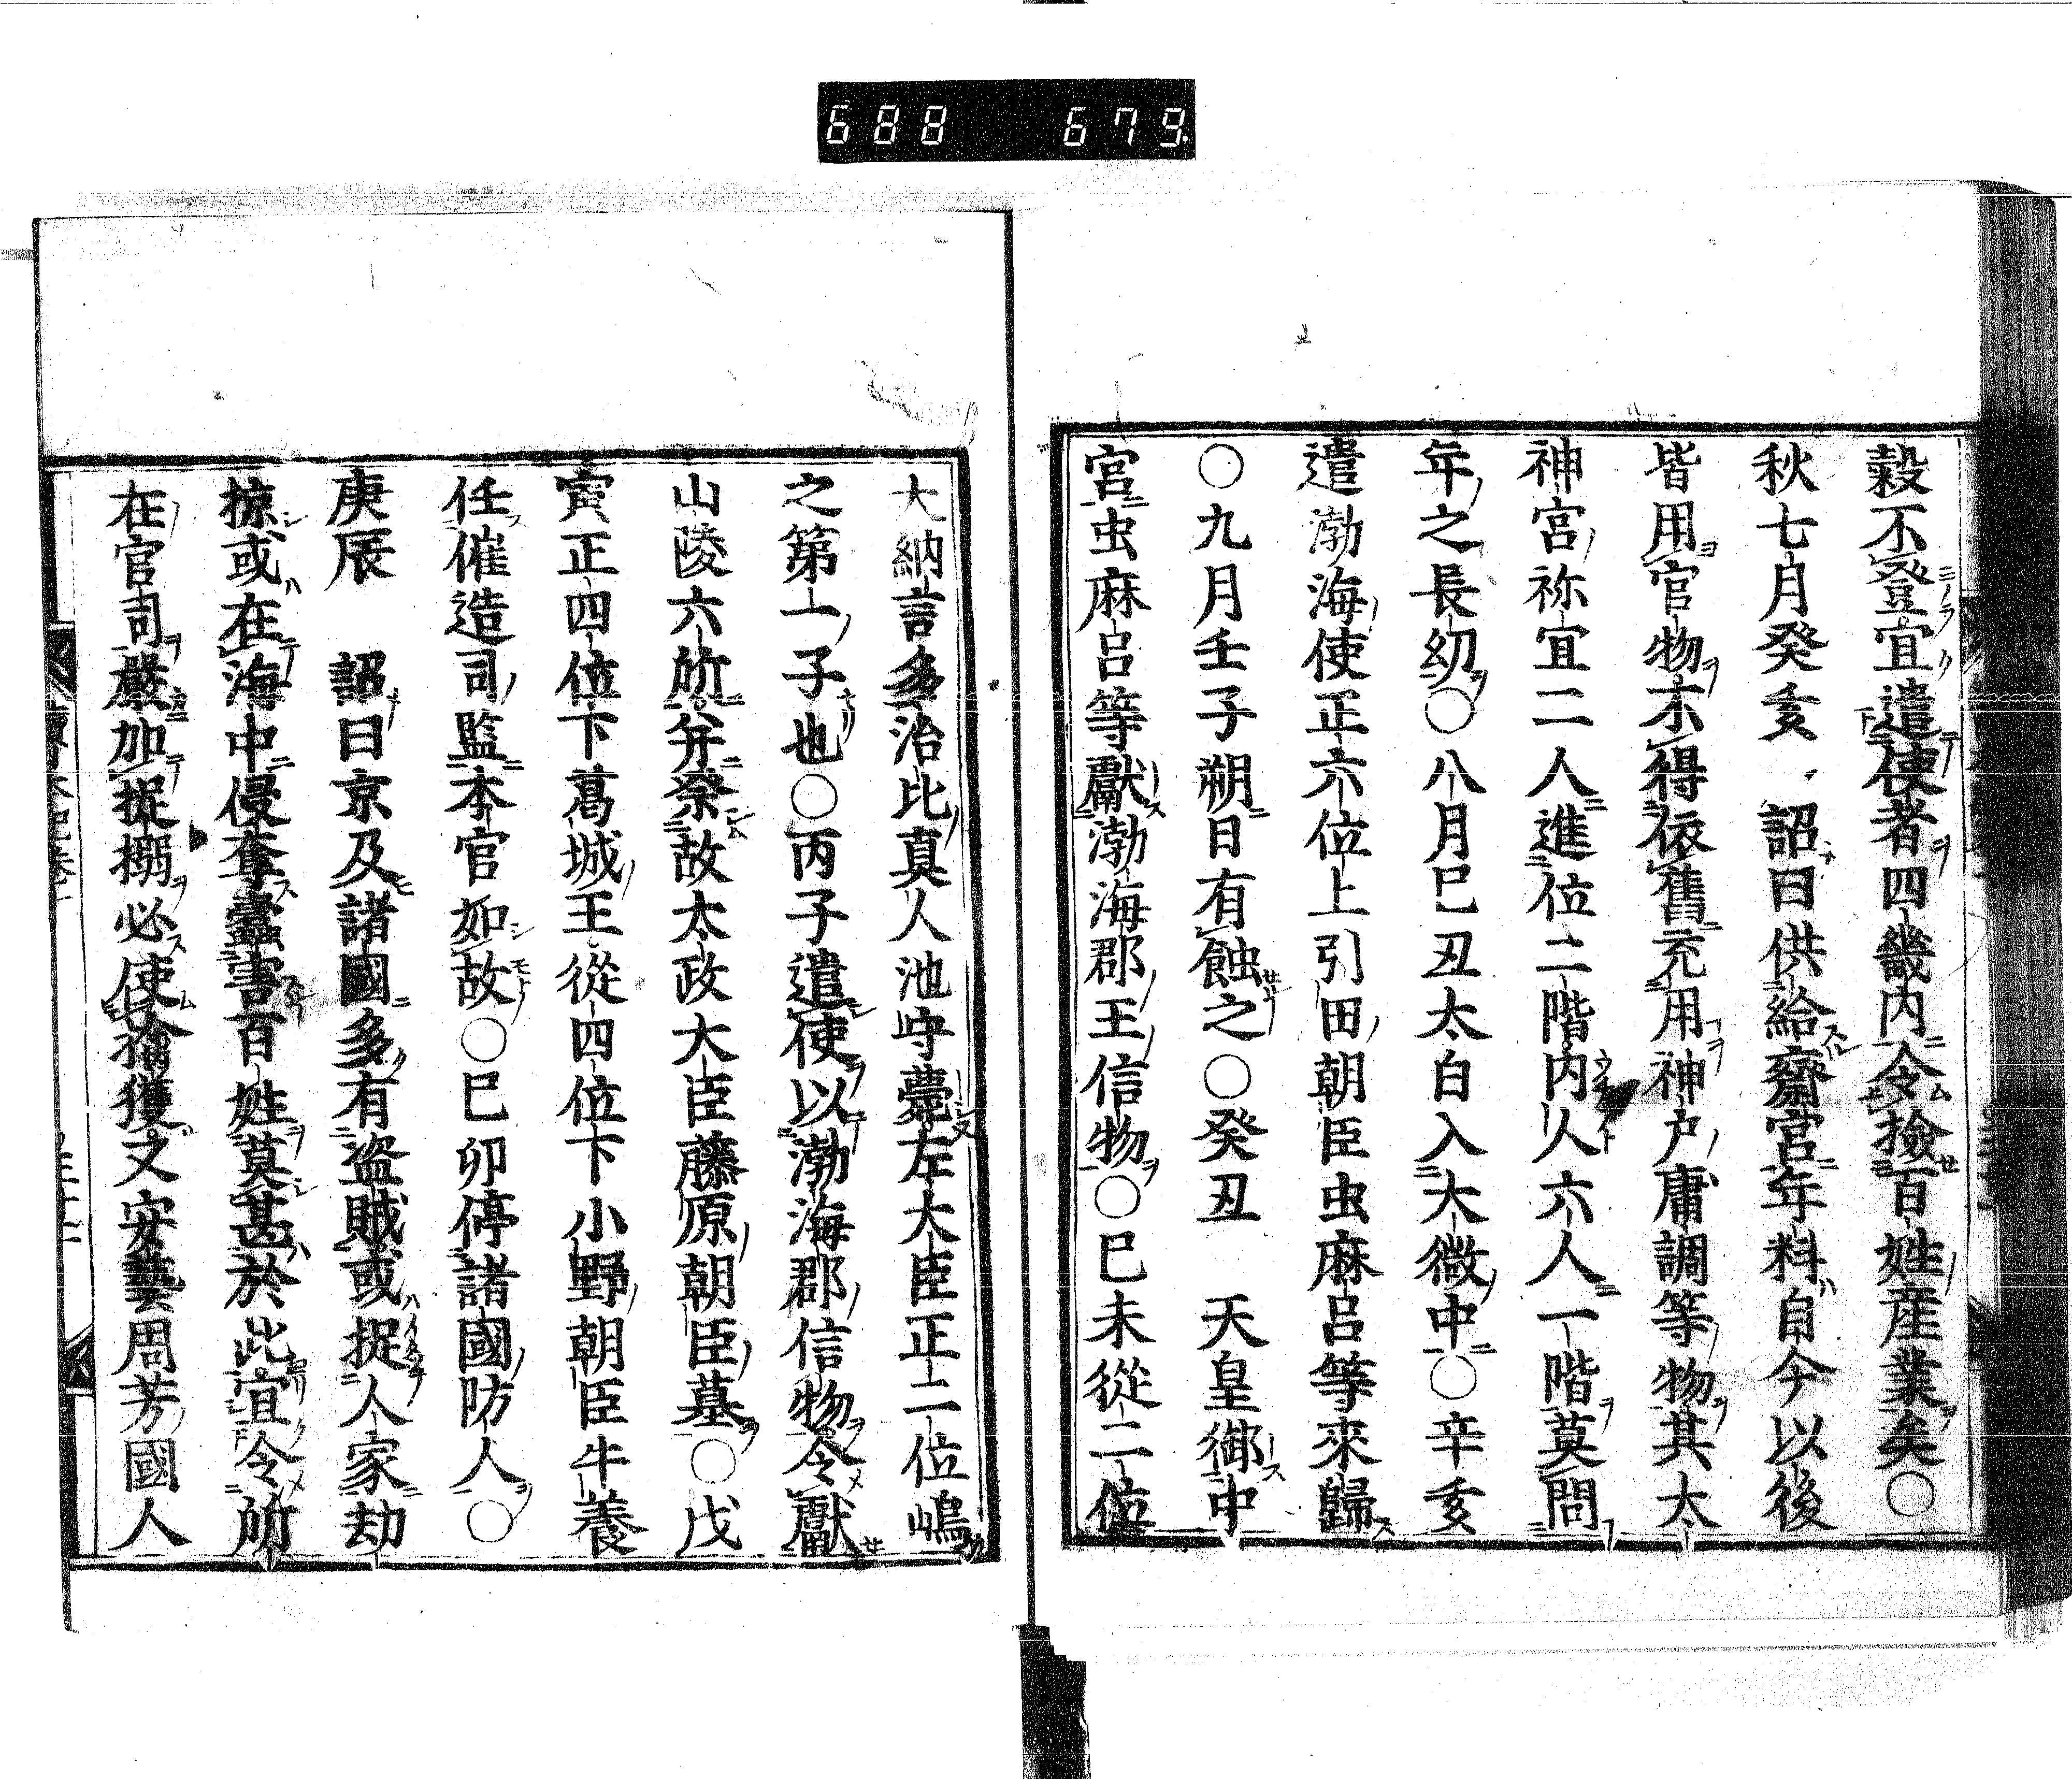 688 679
穀不登宜遣使者四畿内令撿百姓産業矣○
秋七月癸亥詔曰供給齋宮年料自今以後
皆用官物不得依舊充用神戸庸調等物其太
神宮祢宜二人進位二階内人六人一階莫問
年之長幼○八月巳丑太白入大微中○辛亥
遣渤海使正六位上引田朝臣虫麻呂等來歸
○九月壬子朔日有蝕之○癸丑天皇御中
宮虫麻呂等獻渤海郡王信物○巳未從二位
大納言多治比真人池守薨左大臣正二位嶋
之第一子也○丙子遣使以渤海郡信物令獻
山陵六所并祭故太政大臣藤原朝臣墓○戊
寅正四位下葛城王從四位下小野朝臣牛養
任催造司監本官如故○巳卯停諸國防人○
庚辰詔曰京及諸國多有盗賊或捉人家劫
掠或在海中侵奪蠹害百姓莫甚於此宜令所
在官司嚴加捉搦必使擒獲又安藝周芳國人